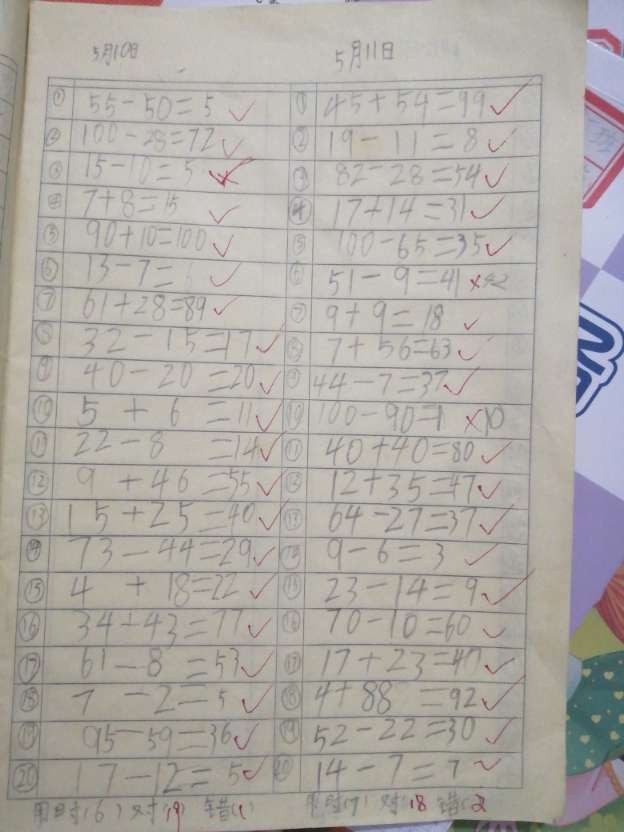 5月10日
① 55-50=5 ✓
② 100-28=72 ✓
③ 15-10=5 ✓
④ 7+8=15 ✓
⑤ 90+10=100 ✓
⑥ 13-7=6 ✓
⑦ 61+28=89 ✓
⑧ 32-15=17 ✓
⑨ 40-20=20 ✓
⑩ 5+6=11 ✓
⑪ 22-8=14 ✓
⑫ 9+46=55 ✓
⑬ 15+25=40 ✓
⑭ 73-44=29 ✓
⑮ 4+18=22 ✓
⑯ 34+43=77 ✓
⑰ 61-8=53 ✓
⑱ 7-2=5 ✓
⑲ 95-59=36 ✓
⑳ 17-12=5 ✓
用时(6) 对(19) 错(1)
5月11日
① 45+54=99 ✓
② 19-11=8 ✓
③ 82-28=54 ✓
④ 17+14=31 ✓
⑤ 100-65=35 ✓
⑥ 51-9=41 ×42
⑦ 9+9=18 ✓
⑧ 7+56=63 ✓
⑨ 44-7=37 ✓
⑩ 100-90=1 ×10
⑪ 40+40=80 ✓
⑫ 12+35=47 ✓
⑬ 64-27=37 ✓
⑭ 9-6=3 ✓
⑮ 23-14=9 ✓
⑯ 70-10=60 ✓
⑰ 17+23=47 ✓
⑱ 4+88=92 ✓
⑲ 52-22=30 ✓
⑳ 14-7=7 ✓
用时(7) 对(18 错(2